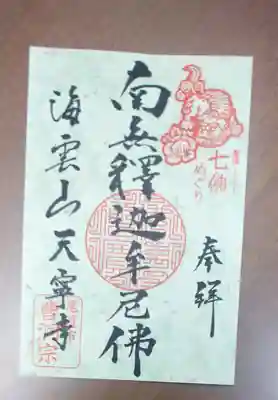 奉拝
七佛
めぐり
南無釋迦牟尼佛
海雲山天寧寺
曹洞宗